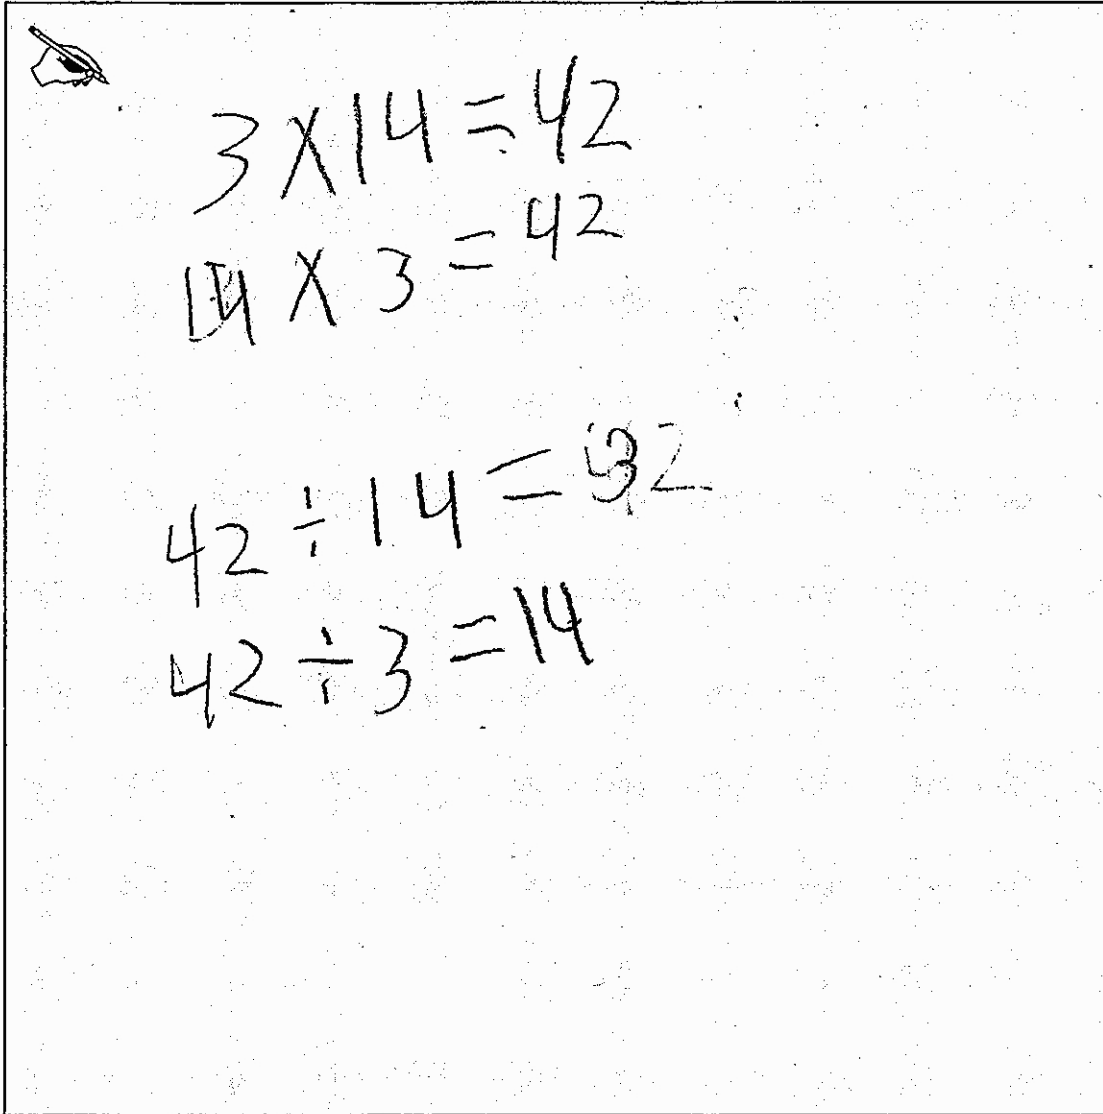 3 × 14 = 42
14 × 3 = 42
42 ÷ 14 = 3
42 ÷ 3 = 14